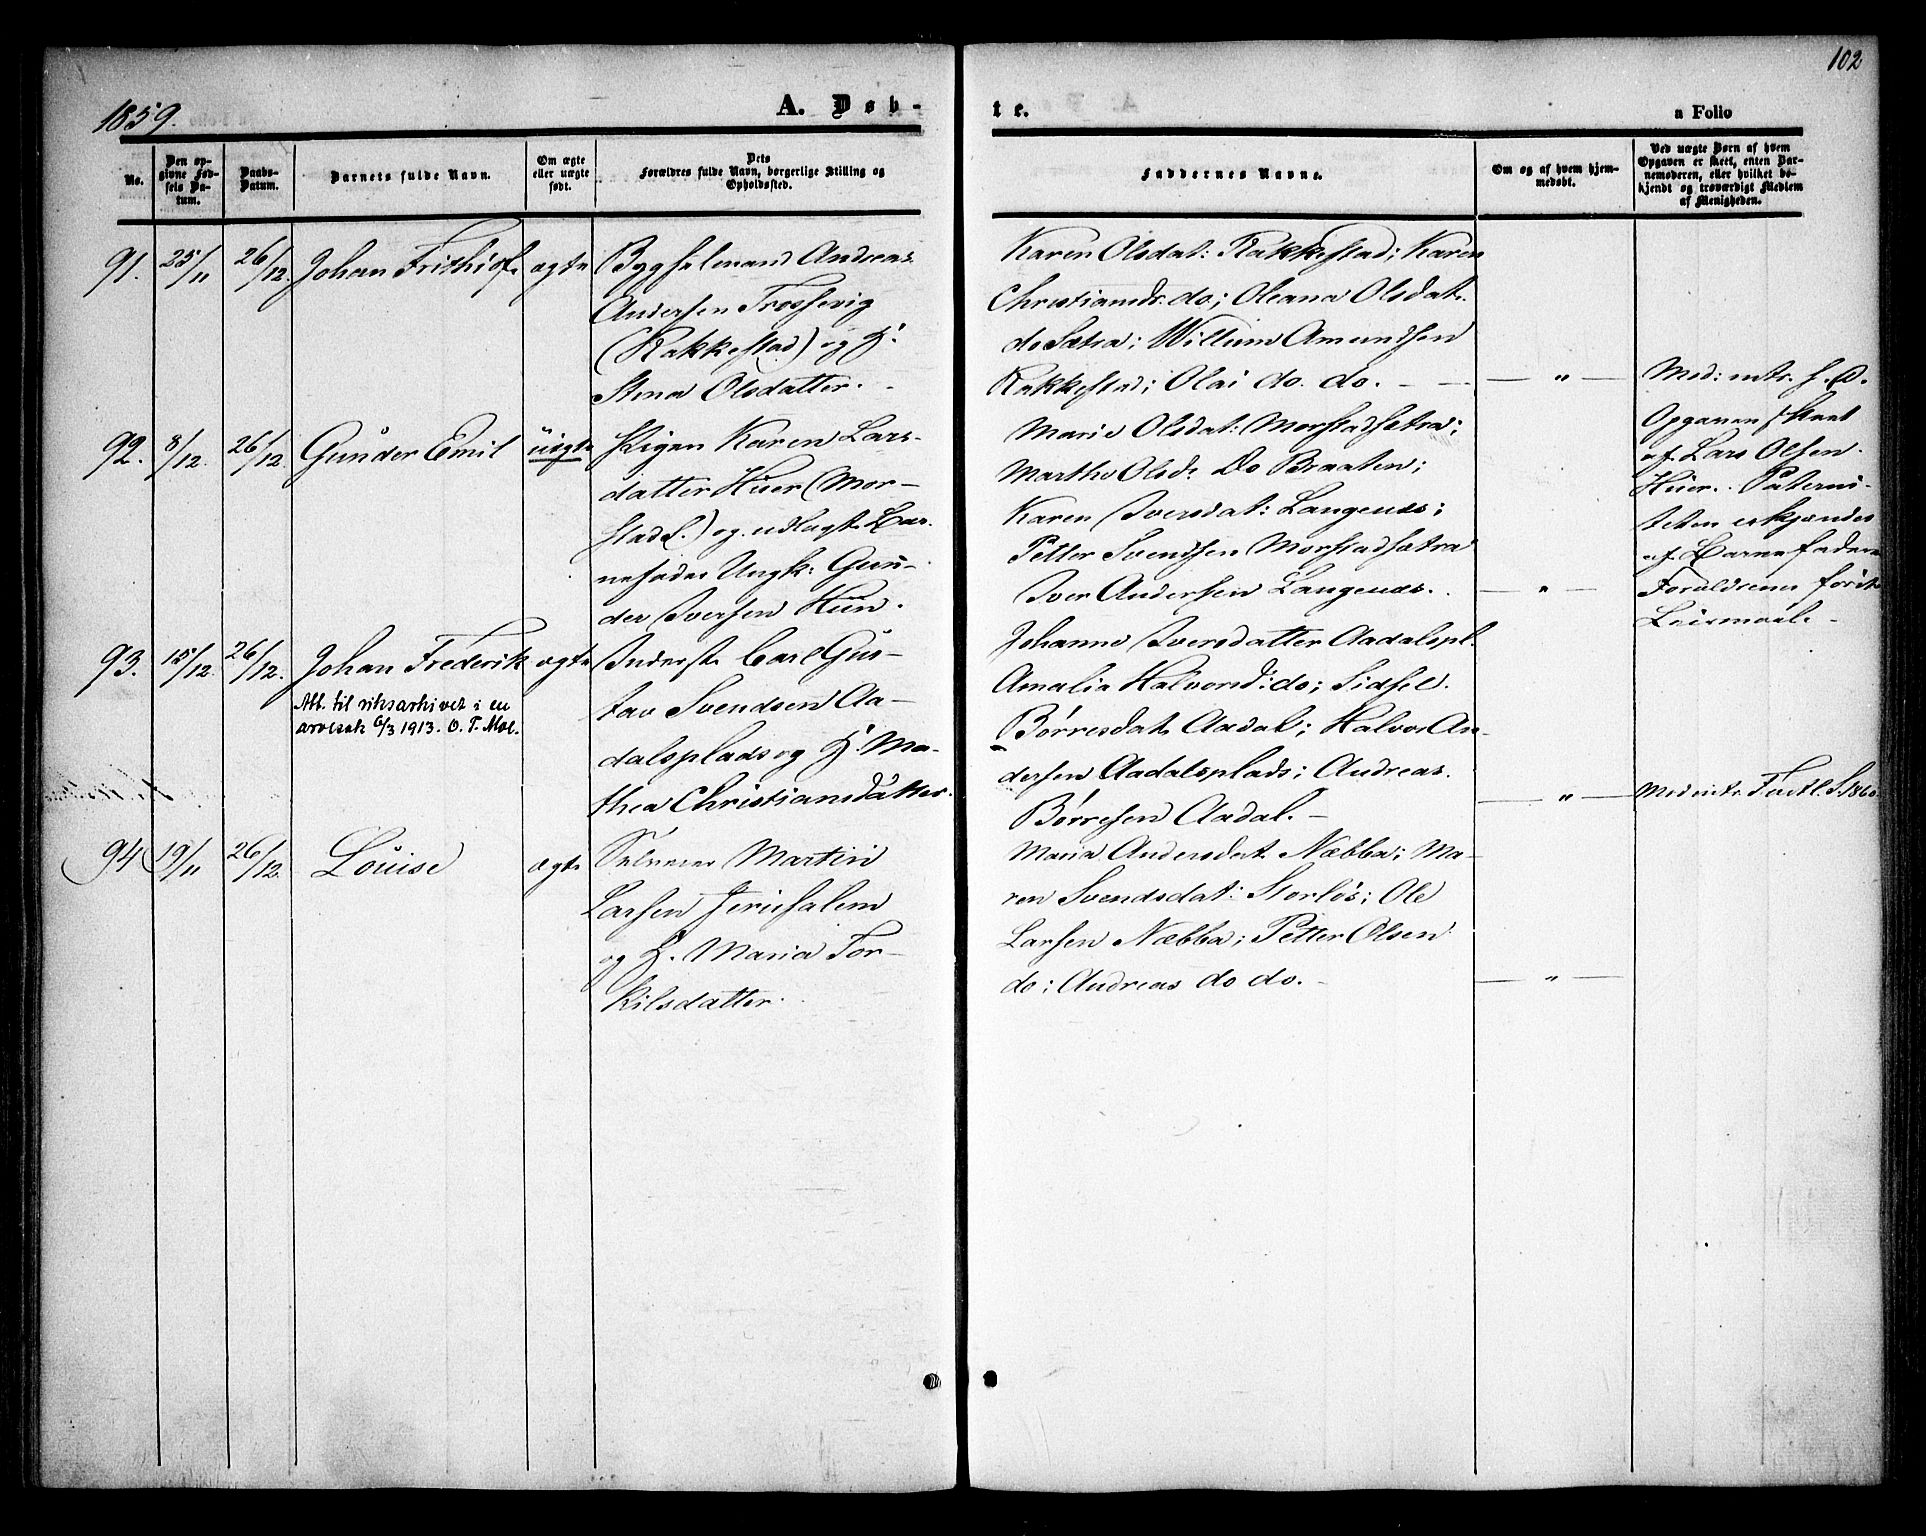 102
1859.
A. Døb-
te.
a Folio
No.
Den op-
givne Fød-
sels Da-
tum.
Daabs-
Datum.
Barnets fulde Navn.
Om ægte
eller uægte
født.
Dets
Forældres fulde Navn, borgerlige Stilling og
Opholdssted.
Faddernes Navne.
Om og af hvem hjem-
medøbt.
Ved uægte Børn af hvem
Opgaven er skeet, enten Bar-
nemoderen, eller hvilket be-
kjendt og troværdigt Medlem
af Menigheden.
91. 25/11 26/12. Johan Frithiof. ægte
Bygselmand Andreas
Andersen Trosservig
(Rakkestad) og H.
Stena Olsdatter.
Karen Olsdat: Rakkestad; Karen
Christiansdr. do; Oleana Olsdat.
do Sætra; Willum Amundsen
Rakkestad; Olai do. do. -
— " —
Mod: intr. s. D.
92. 8/12. 26/12. Gunder Emil uægte
Pigen Karen Lars-
datter Huer (Mor-
stad .) og udlagt Bar-
nefader Ungk: Gun-
der Iversen Hun.
Marie Olsdat: Morstadsætra;
Marthe Olsdr Do Braaten;
Karen Iversdat: Langenæs;
Petter Svendsen Morstadsætra
Iver Andersen Langenæs.
— " —
Opgaven skeet
af Lars Olsen
Huer. Paterni-
teten erkjendes
af Barnefaderen
Forældrenes første
Leiermaal. -
93. 15/12. 26/12. Johan Frederik ægte
Att. til riksarkivet i en
arvesak 6/3 1913. O. T. Moe.
Inderst Carl Gus-
tav Svendsen Aa-
dalsplads og H. Ma-
thea Christiansdatter.
Johanne Iversdatter Aadalspl.
Amalia Halvorsd: do; Sidsel
Børresdat. Aadal; Halvor An-
dersen Aadalsplads; Andreas
Børresen Aadal. -
— " —
Mod intr. Fastl. S. 1860.
94 19/11 26/12. Louise ægte
Selveier Martin
Larsen Jerusalem
og H. Maria Tor-
kilsdatter.
Maria Andersdat. Næbba; Ma-
ren Svendsdat: Storløs; Ole
Larsen Næbba; Petter Olsen
do; Andreas do do. -
— " —